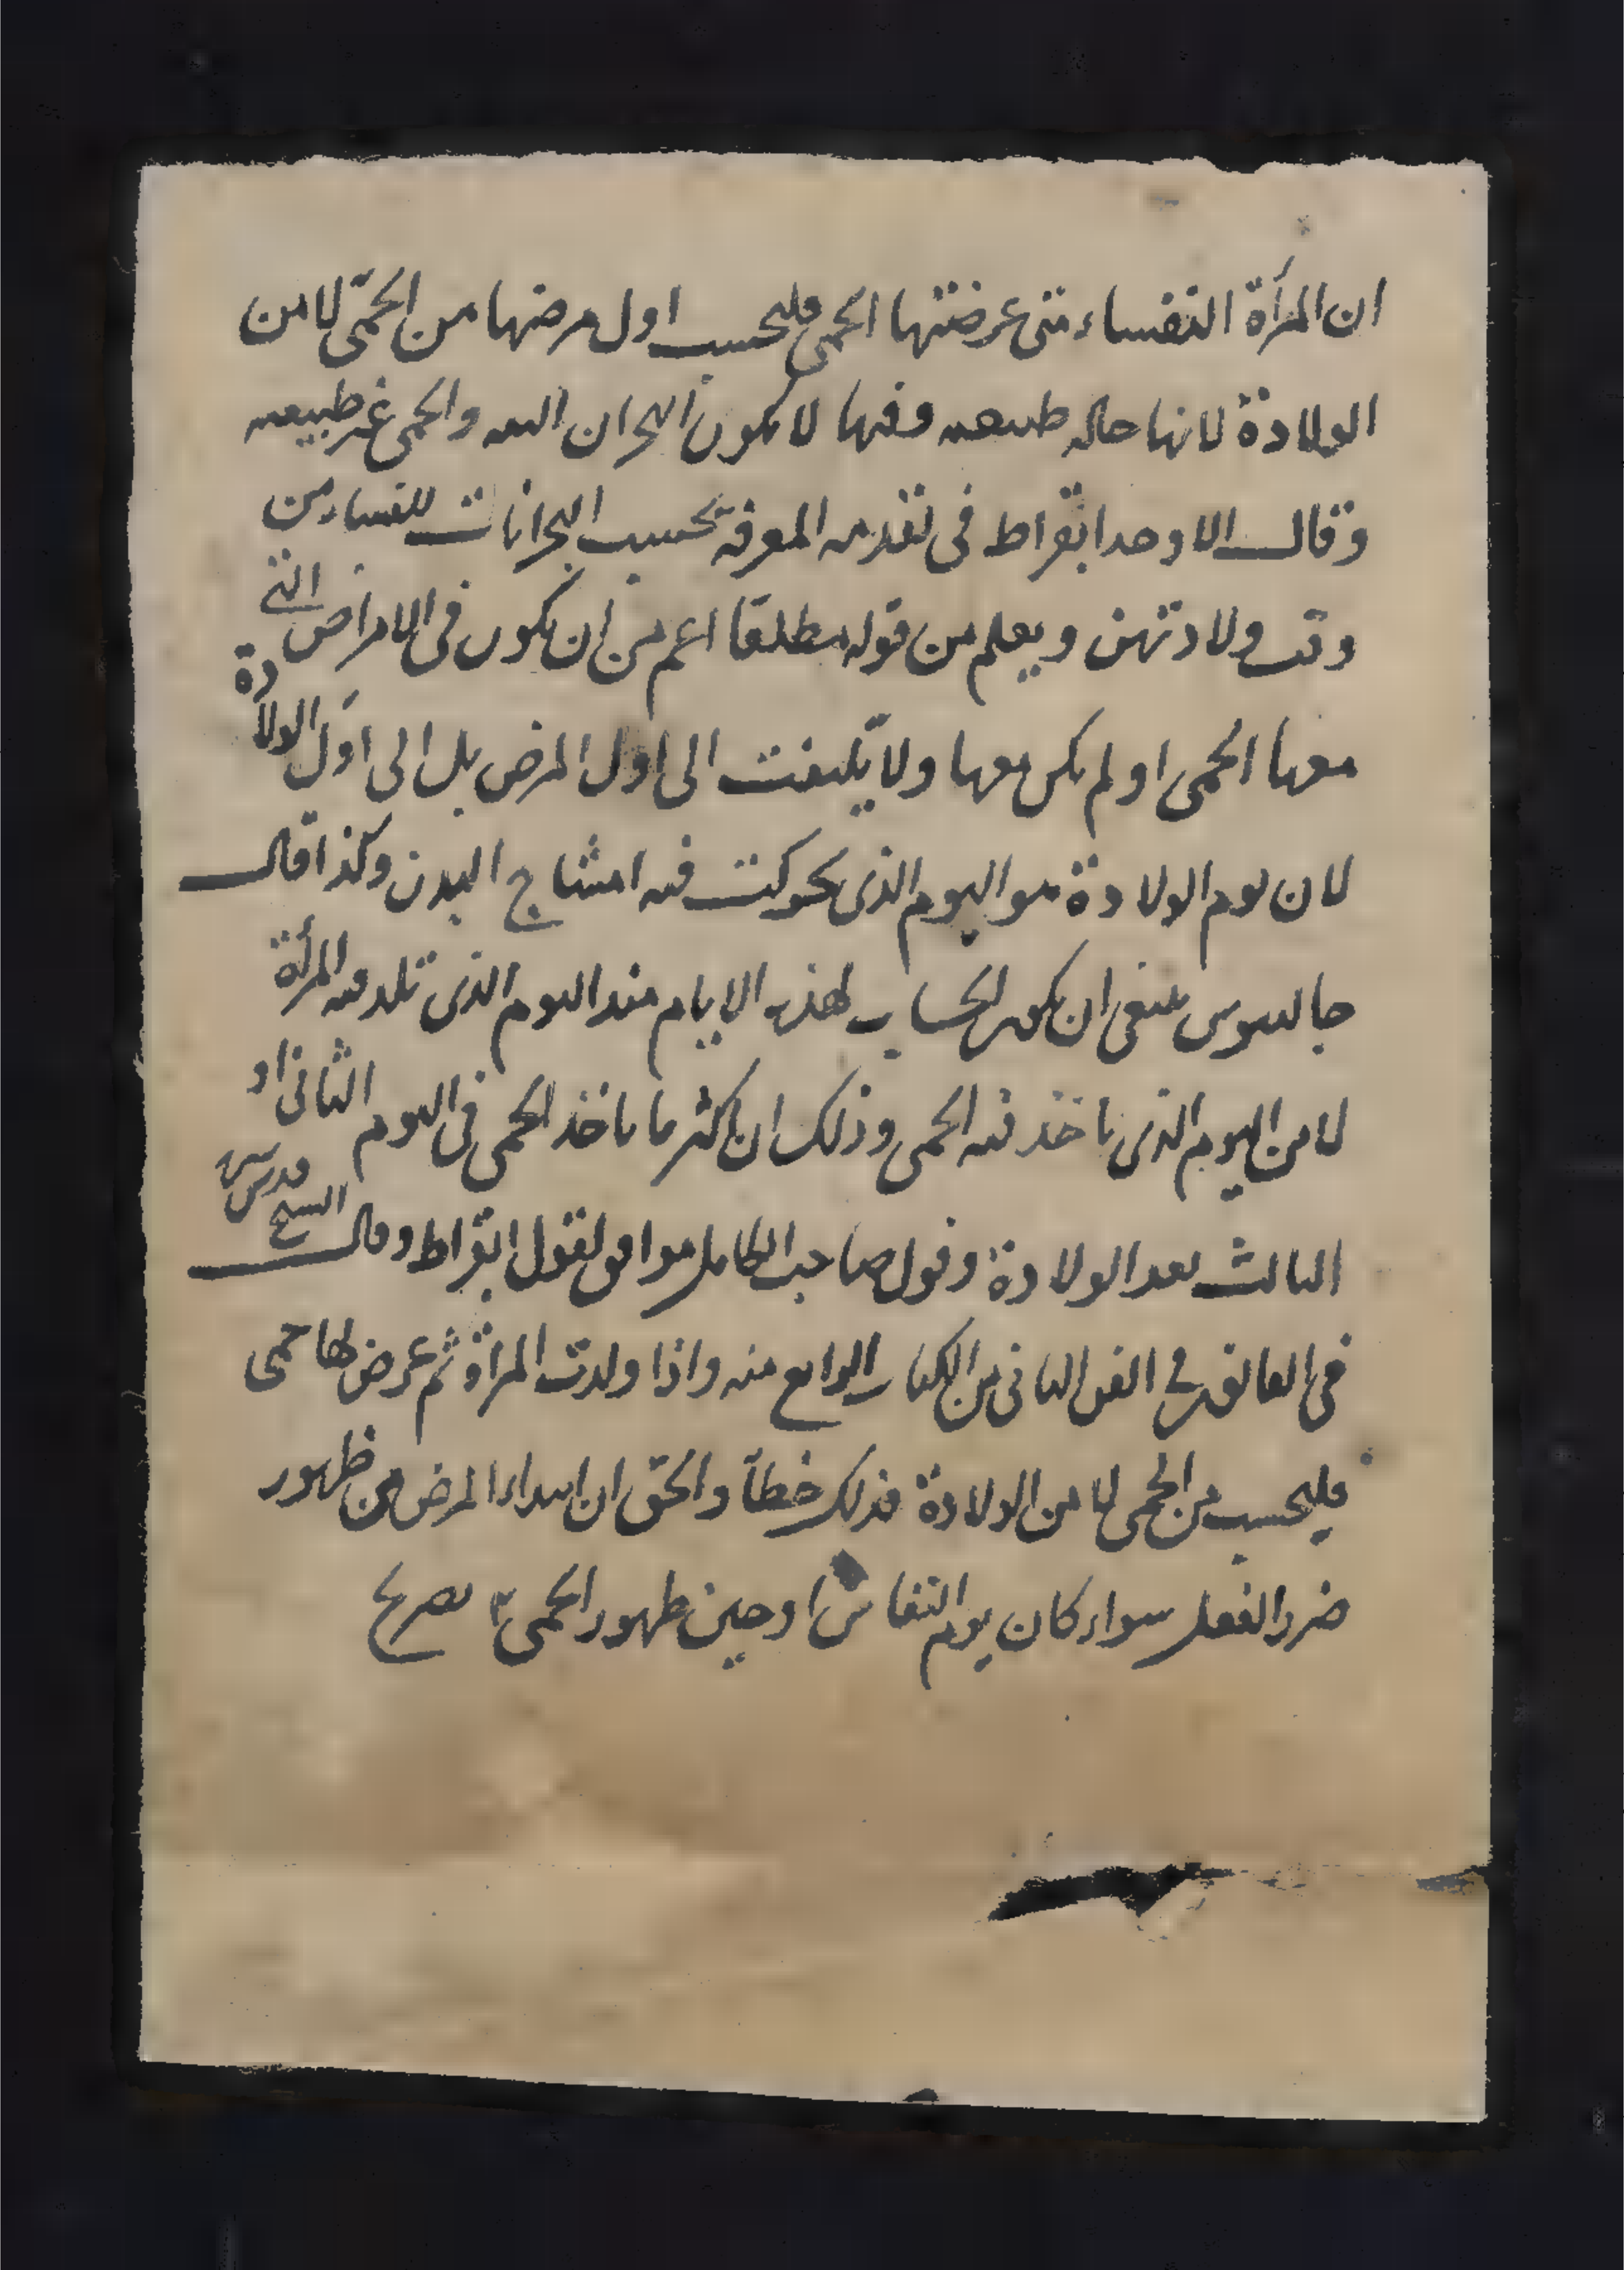 ان المرأة النفساء متى عرضتها الحمى فليحسب اول مرضها من الحمّى لا من
الولادة لانها حاله طبيعيه وفيها لا يكون البحران البته والحمى غير طبيعيه
وقال الاوحد ابقراط فى تقدمه المعرفه تحسب البحرانات للنساء من
وقت ولادتهن ويعلم من قوله مطلقا اعم من ان يكون فى الامراض التى
معها الحمى او لم يكن معها ولا يلتفت الى اول المرض بل الى اوّل الولادة
لان يوم الولادة هو اليوم الذى تحركت فيه امشاج البدن وكذا قال
جالينوس ينبغى ان يكون الحساب لهذه الايام منذ اليوم الذى تلد فيه المرأة
لا من اليوم الذى تاخذ فيه الحمى وذلك ان اكثر ما تاخذ الحمى فى اليوم الثانى او
الثالث بعد الولادة وقول صاحب الكامل موافق لقول ابقراط وقال الشيخ قدس سره
فى القانون فى الفن الثانى من الكتاب الرابع منه واذا ولدت المراة ثم عرض لها حمى
فليحسب من الحمى لا من الولادة فذلك خطأ والحق ان ابتداء المرض من ظهور
ضرر الفعل سواء كان يوم النفاس او حين ظهور الحمى ٣ تصريح